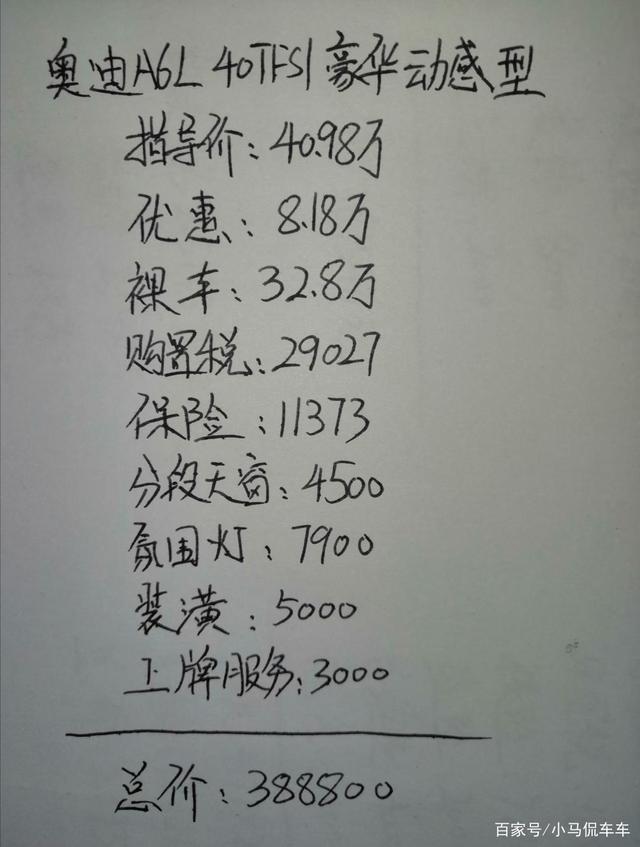 奥迪A6L 40TFSI豪华动感型
指导价:40.98万
优惠:8.18万
裸车:32.8万
购置税:29027
保险:11373
分段天窗:4500
氛围灯:7900
装潢:5000
上牌服务:3000
总价:388800
百家号/小马侃车车